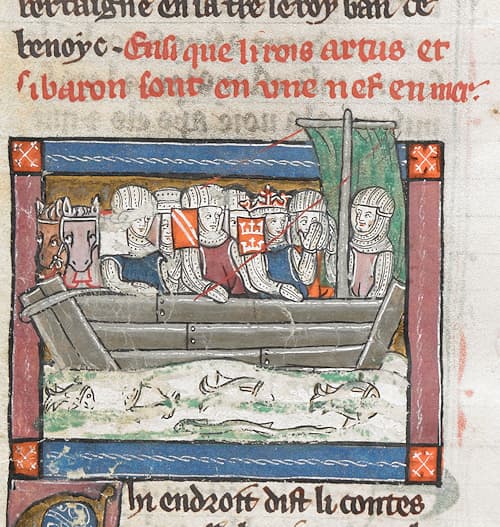 bertaigne en la t're le roy ban de
benoyc - Ensi que li rois artus et
si baron sont en vne nef en mer.
hi endroit dist li contes